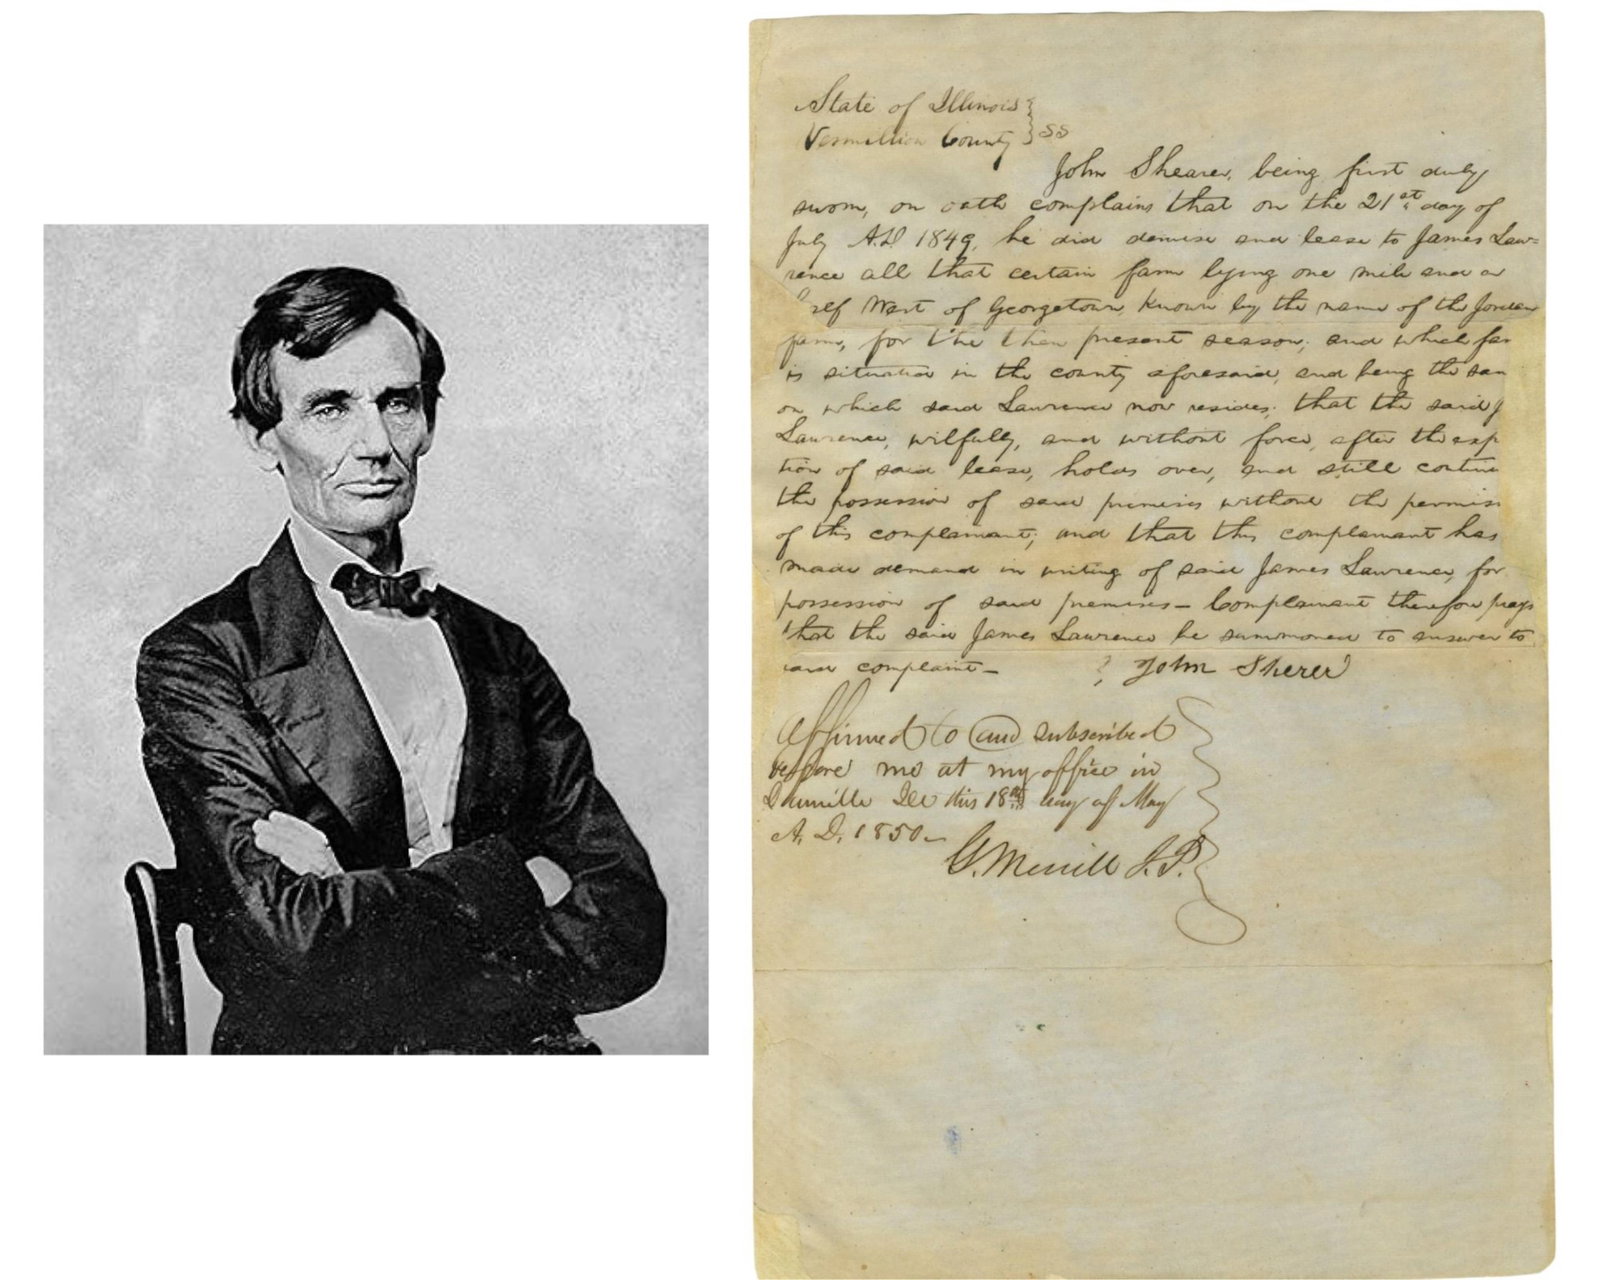 State of Illinois }
Vermillion County } SS
John Shearer, being first duly
sworn, on oath complains that on the 21st day of
July A.D 1849, he did demise and lease to James Law=
rence all that certain farm lying one mile and a
half West of Georgetown known by the name of the Jordan
farm, for the then present season; and which far
is situated in the county aforesaid, and being the sam
on which said Lawrence now resides; that the said J
Lawrence, wilfully, and without force, after the exp
tion of said lease, holds over, and still continu
the possession of said premises without the permiss
of this complainant; and that this complainant has
made demand in writing of said James Lawrence, for
possession of said premises — Complainant therefore prays
that the said James Lawrence be summoned to answer to
said complaint — John Sherer
Affirmed to and subscribed
before me at my office in
Danville Ill this 18th day of May
A. D. 1850 —
G. Merrill J. P.